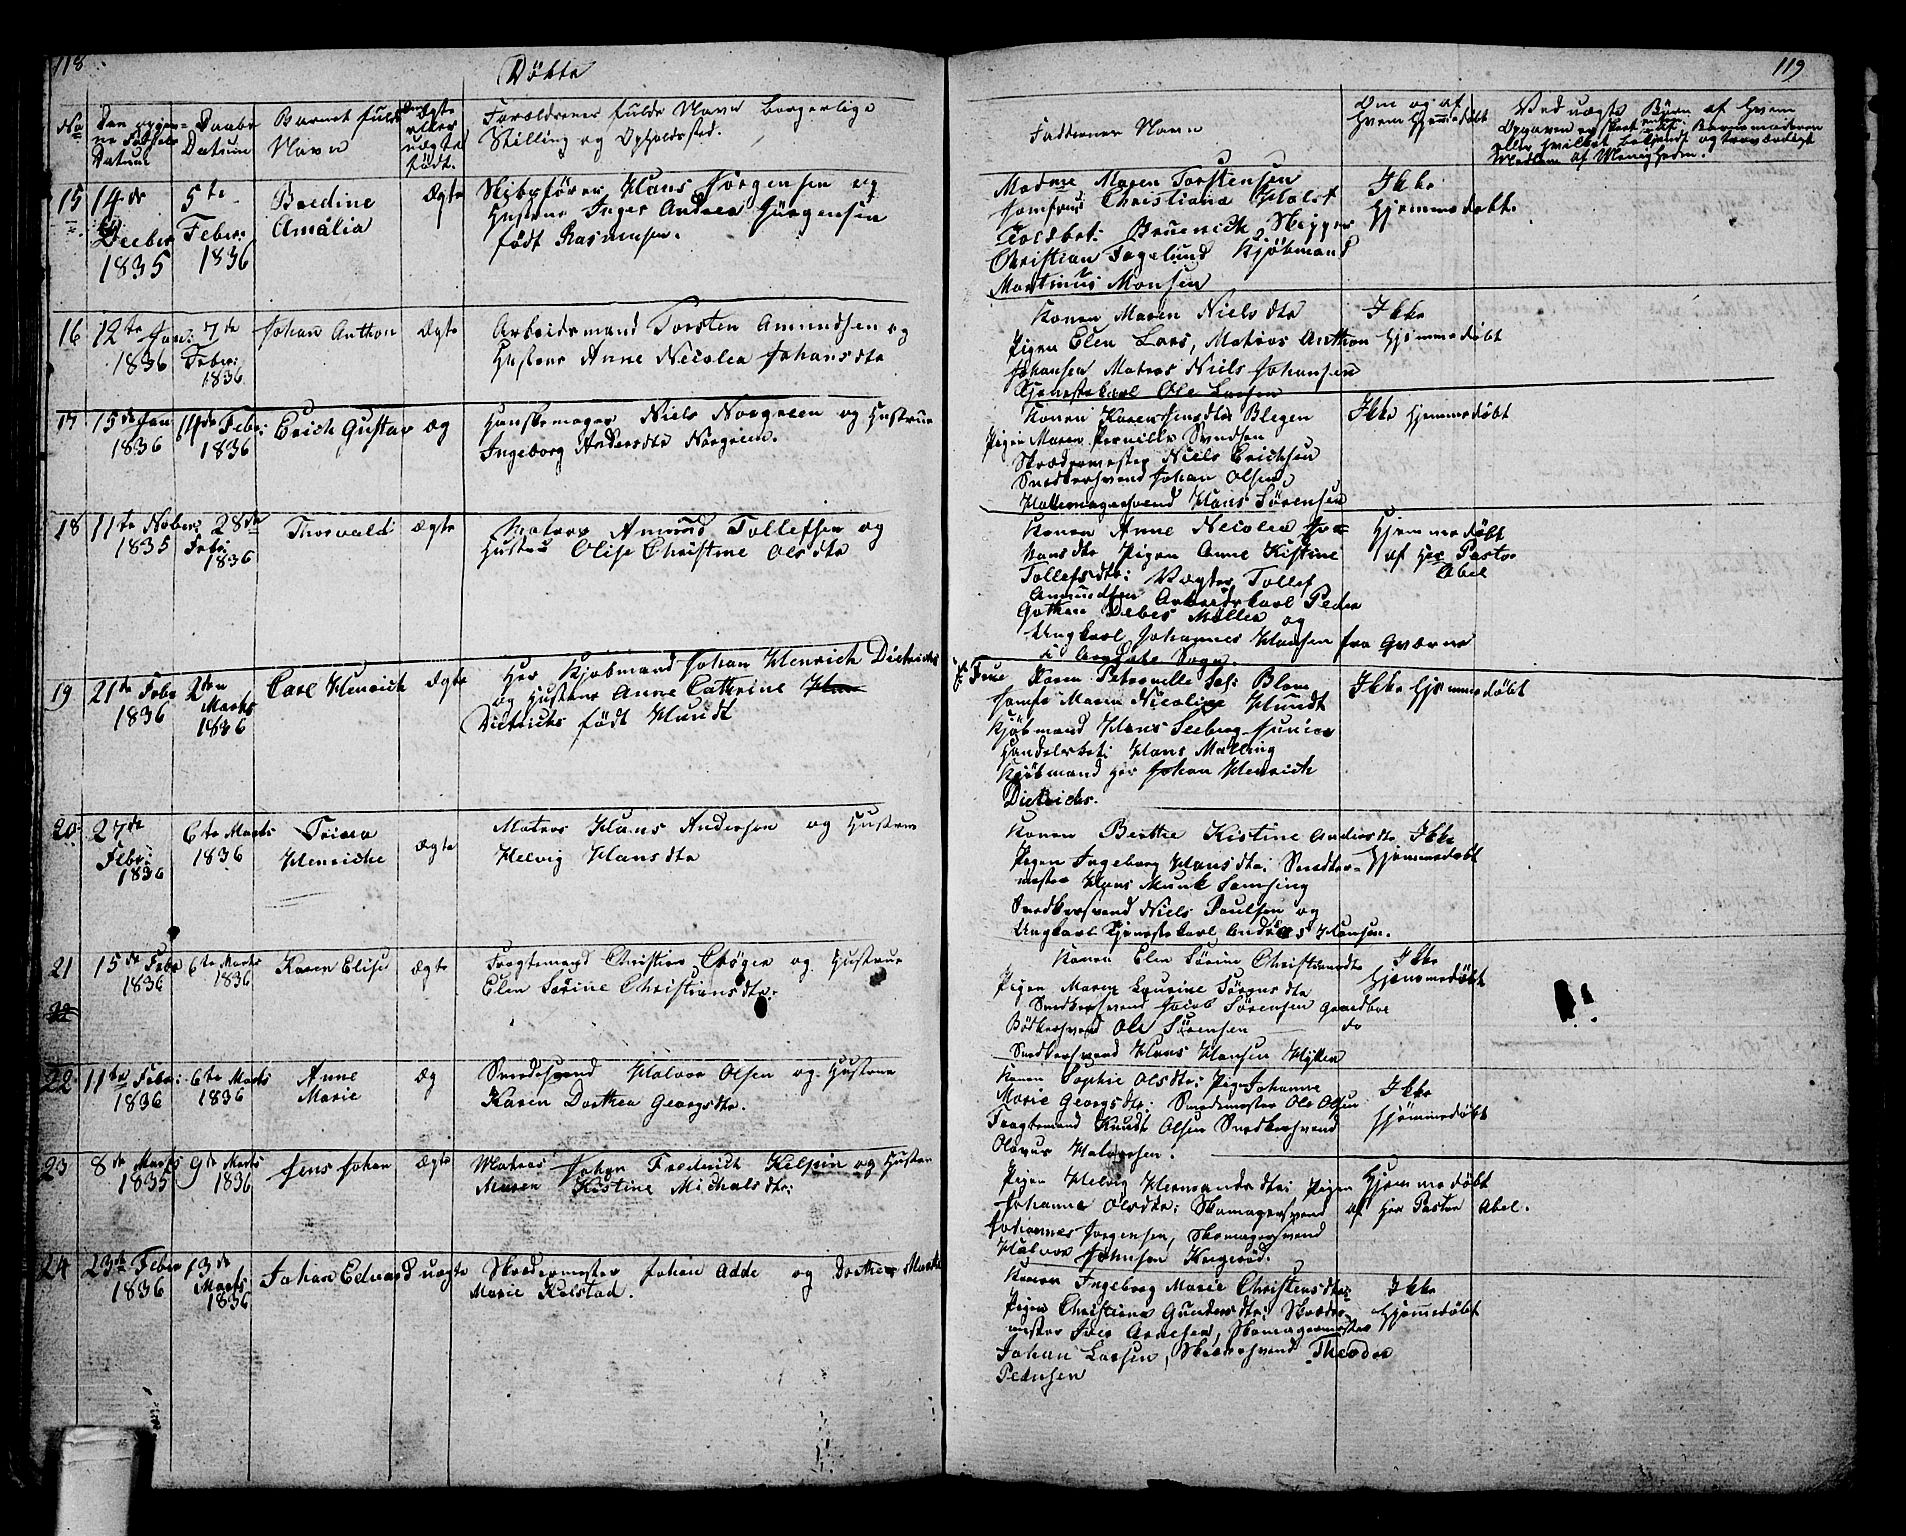 118
Døbte
No
Den opgivne Fødsels Datum
Daabs Datum
Barnets fulde Navn
Om Ægte eller uægte født.
Forældrenes fulde Navn borgerlige
Stilling og Opholdssted.
15
14de
Decber
1835
5te
Febr:
1836
Bredine
Amalia
Ægte
Skibsfører Hans Jørgensen og
Hustrue Inger Andrea Jørgensen
født Rasmusen.
16
12te Jan:
1836
7de
Febr:
1836
Johan Anthon
Ægte
Arbeidsmand Torsten Amundsen og
Hustrue Anne Nicolea Johansdtr
17
15de Jan
1836
14de Febr:
1836
Erich Gustav
Æg
Handskemager Niels Norgreen og Hustrue
Ingeborg Andersdtr Norgreen.
18
11te Nober:
1835
28de
Febr:
1836
Thorvald
Ægte
Matros Amund Tollefsen og
Hustru Olise Christine Olsdtr
19
21de Febr
1836
2den
Marts
1836
Carl Henrich
Ægte
Her Kjøbmand Johan Henrich Dietrichs
og Hustrue Anne Cathrine
Dietrichs født Hundt
20
27de
Febr:
1836
6te Marts
1836
Trine
Henriche
Ægte
Matros Hans Andersen og Hustrue
Helvig Hansdtr
21
15de Febr
1836
6te Marts
1836
Karen Elise
Ægte
Fragtemand Christian Crøger og Hustrue
Elen Sørine Christiansdtr:
22
22
11te Febr:
1836
6te Marts
1836
Anne
Marie
Æg
Smedesvend Halvor Olsen og Hustrue
Karen Dorthea Georgsdtr.
23
8de Marts
1835
9de Marts
1836
Jens Johan
Ægte
Matros Johan Frederich Kilpin og Hustru
Maren Kistine Michalsdtr:
24
23de Feber
1836
13de
Marts
1836
Johan Eduard
uægte
Skredermester Johan Adde og Dorthea
Marie Kolstad.
119
Faddernes Navne
Om og af
Hvem Hjemmedøbt
Ved uægte Børn af Hvem
Opgaven er skeet enten af Barnemoderen
eller hvilket bekjendt og troværdigt
Medlem af Menigheden.
Madme Maren Torstensen
Jomfrue Christiane Holst
Toldbet: Bruenich, Skipper
Christian Fagelund Kjøbmand
Martinus Monsen
Ikke
Hjemmedøbt.
Konen Maren Nielsdtr
Pigen Elen Lars, Matros Anthon
Johansen Matros Niels Johansen
Tjenestekarl Ole Larsen
Ikke
Hjemmedøbt
Konen Karen Jensdtr Blegen
Pigen Maren Pernille Svendsen
Skrædermester Niels Erichsen
Snedkersvend Johan Olsen
Hattemagersvend Hans Sørensen
Ikke Hjemmedøbt
Konen Anne Nicolea Johansdtr Pigen Anne Kistine
Tollefsdtr: Vægter Tollef
Amundsen Arbeidskarl Peder
Gothen Debes Møller og
Ungkarl Johannes Hansen fra Gværne
i Sogn.
Hjemmedøbt
af Her Pastor
Abel
Frue Karen Petronelle Sal: Blom
Jomfr Maren Nicoline Hundt
Kjøbmand Hans Seeberg Junior
Handelsbet: Hans Malling
Kjøbmand Her Johan Henrich
Dietrichs.
Ikke Hjemmedøbt
Konen Berthe Kistine Andersdtr
Pigen Ingeborg Hansdtr: Snedkermester Hans Munk Samsing
Snedkersvend Niels Poulsen og
Ungkarl Tjenestekarl Andreas Hansen.
Ikke
Hjemmedøbt
Konen Elen Sørine Christiansdtr
Pigen Maren Laurine Sørensdtr
Snedkersvend Jacob Sørensen Grandboe
Bødkersvend Ole Sørensen do
Snedkersvend Hans Hansen Hytten
Ikke
Hjemmedøbt
Konen Sophie Olsdtr: Pige Johanne
Marie Georgsdtr: Smedemester Ole Olsen
Fragtemand Knudt Olsen Snedkersvend
Olavus Halvorsen.
Ikke
Hjemmedøbt
Pigen Helvig Hermandsdtr: Pigen
Johanne Olsdtr: Skomagersvend
Johannes Jørgensen, Skomagersvend
Halvor Johnsen Kragerød.
Hjemmedøbt
af Her Pastor Abel.
Konen Ingeborg Marie Christensdtr:
Pigen Christiane Gundersdtr: Skrædermester Iver Arnesen, Skomagermester
Johan Larsen, Skredersvend Theodor
Pedersen
Ikke
Hjemmedøbt